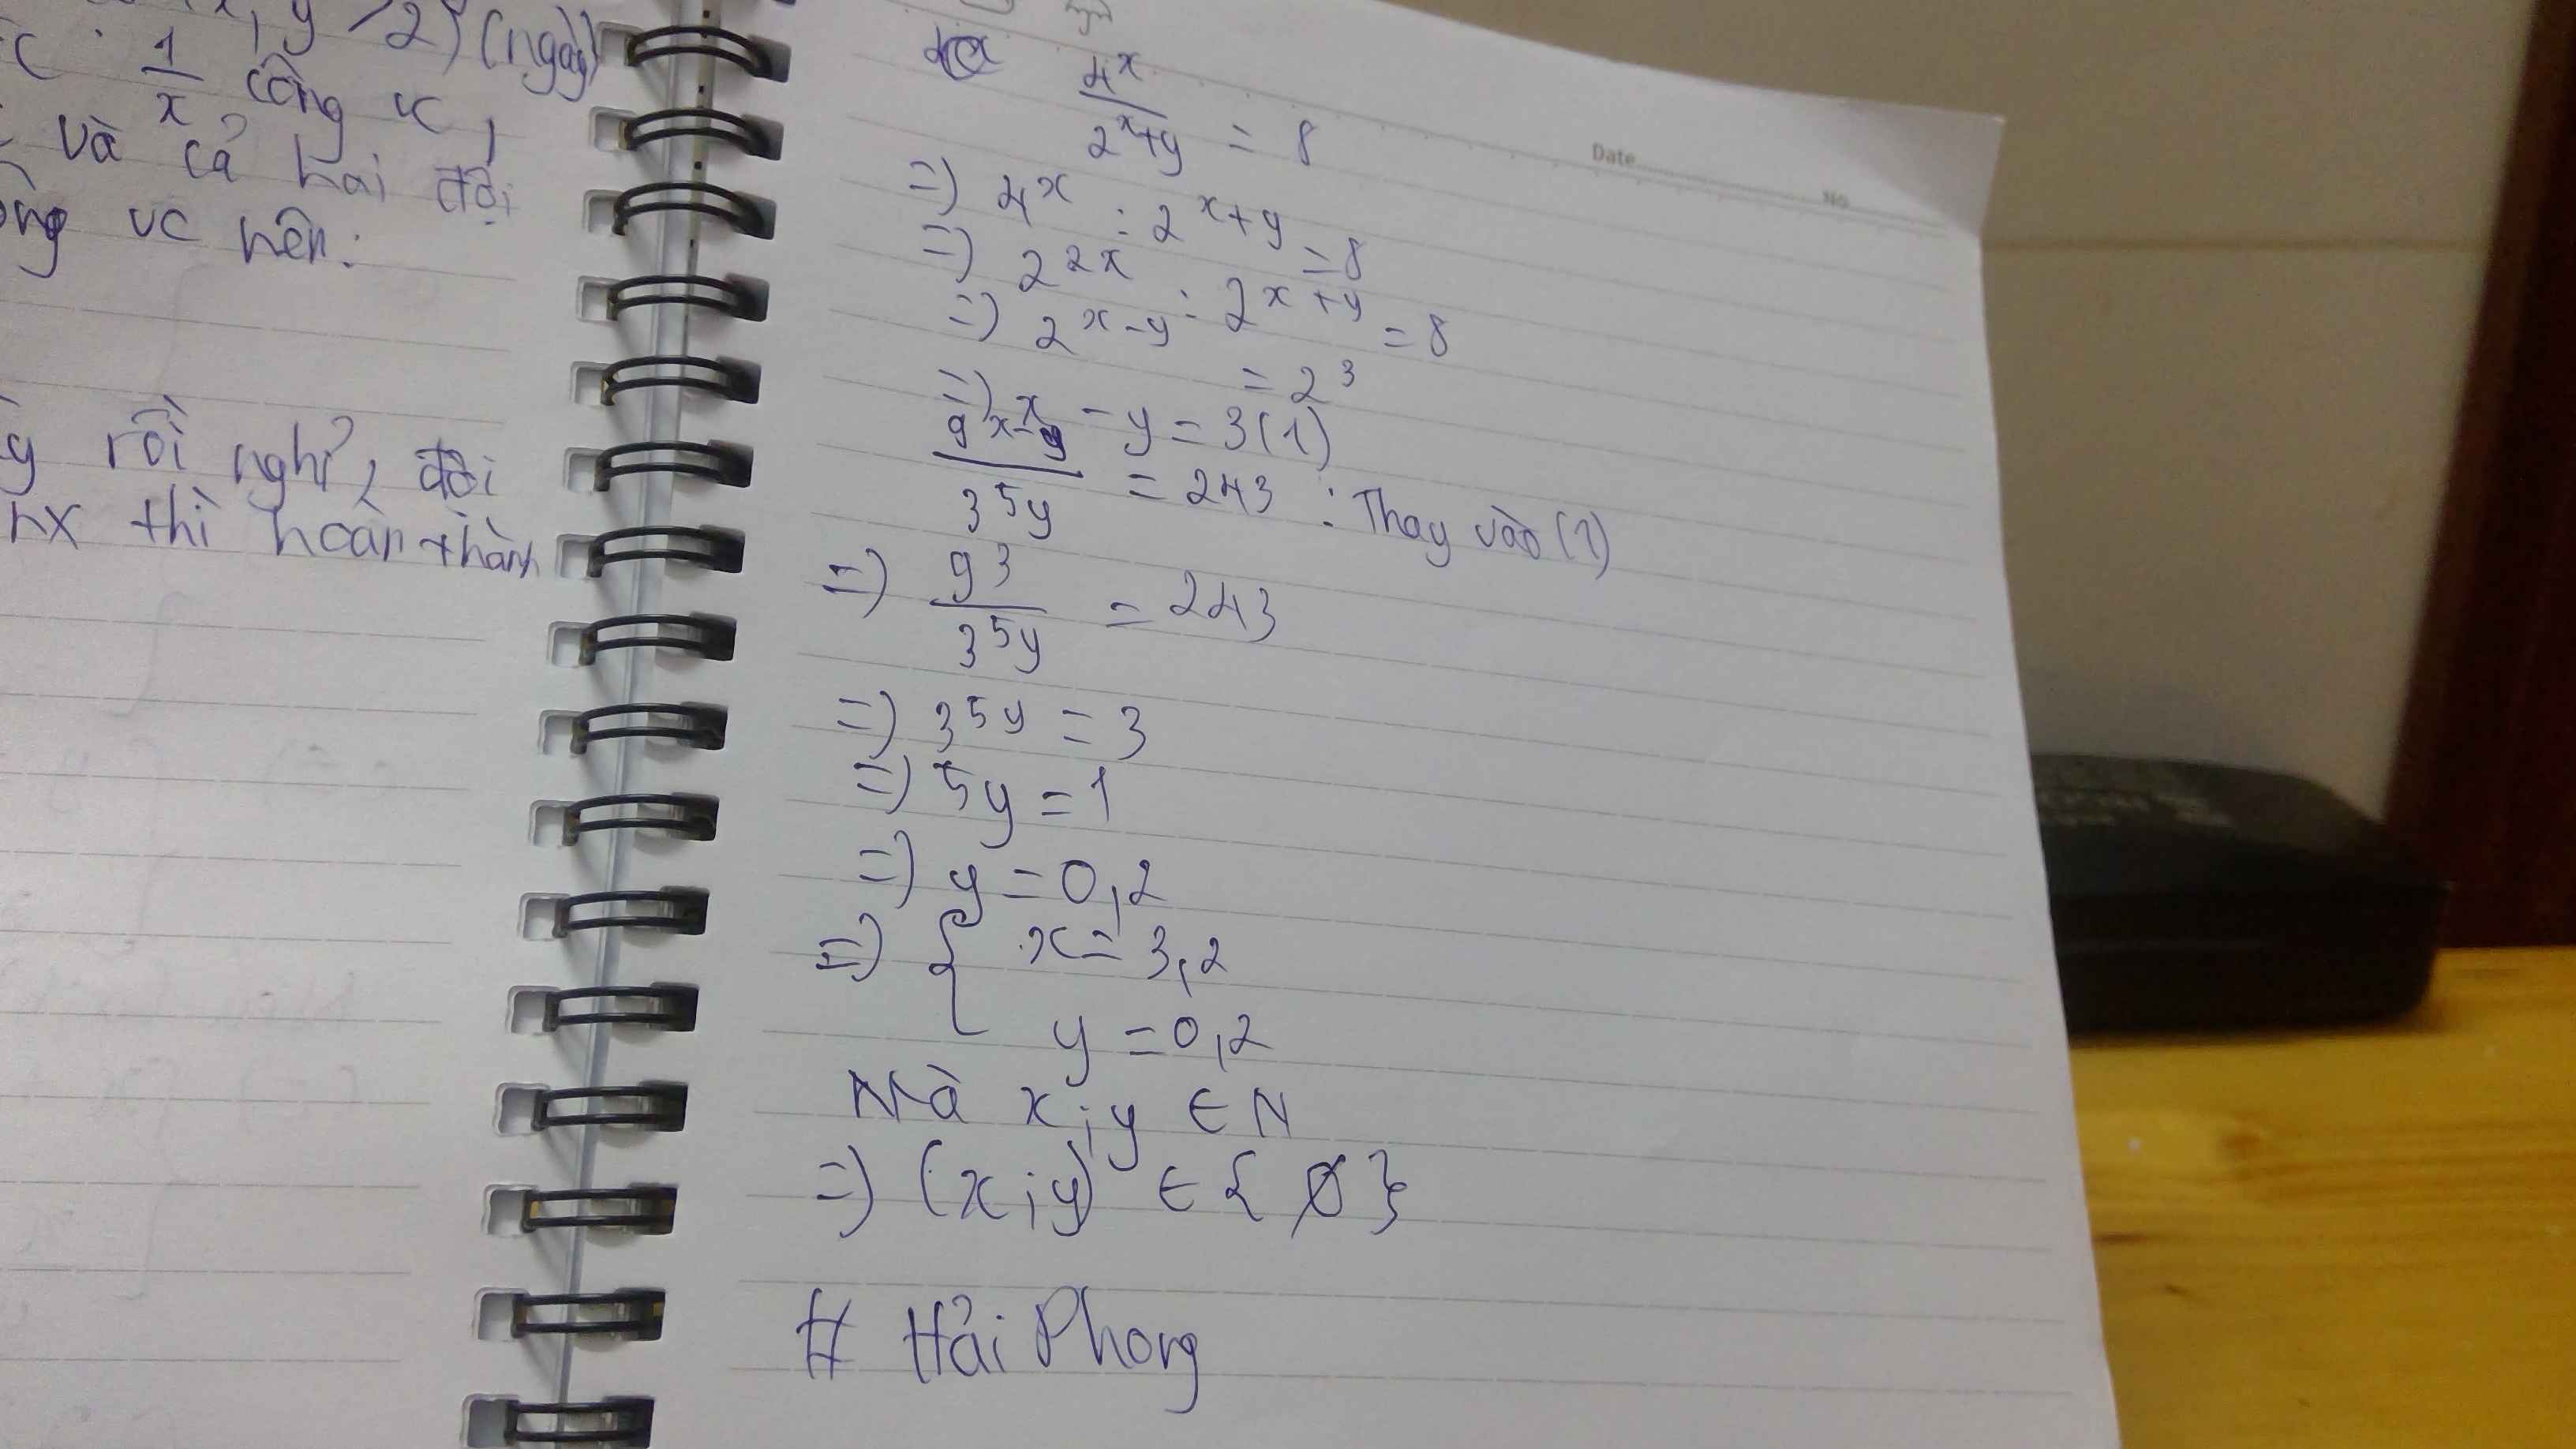 x, y > 2) (ngày)
1/x công vc,
và cả hai đội
vc nên:
rồi nghỉ, đội
nx thì hoàn thành
Date
No
4^x / 2^{x+y} = 8
=) 4^x : 2^{x+y} = 8
=) 2^{2x} : 2^{x+y} = 8
=) 2^{x-y} = 2^3
=) x - y = 3 (1)
9^{x-y} / 3^{5y} = 243 : Thay vào (1)
=) 9^3 / 3^{5y} = 243
=) 3^{5y} = 3
=) 5y = 1
=) y = 0,2
=) { x = 3,2
y = 0,2
Mà x;y ∈ N
=) (x;y) ∈ {Ø}
# Hải Phong